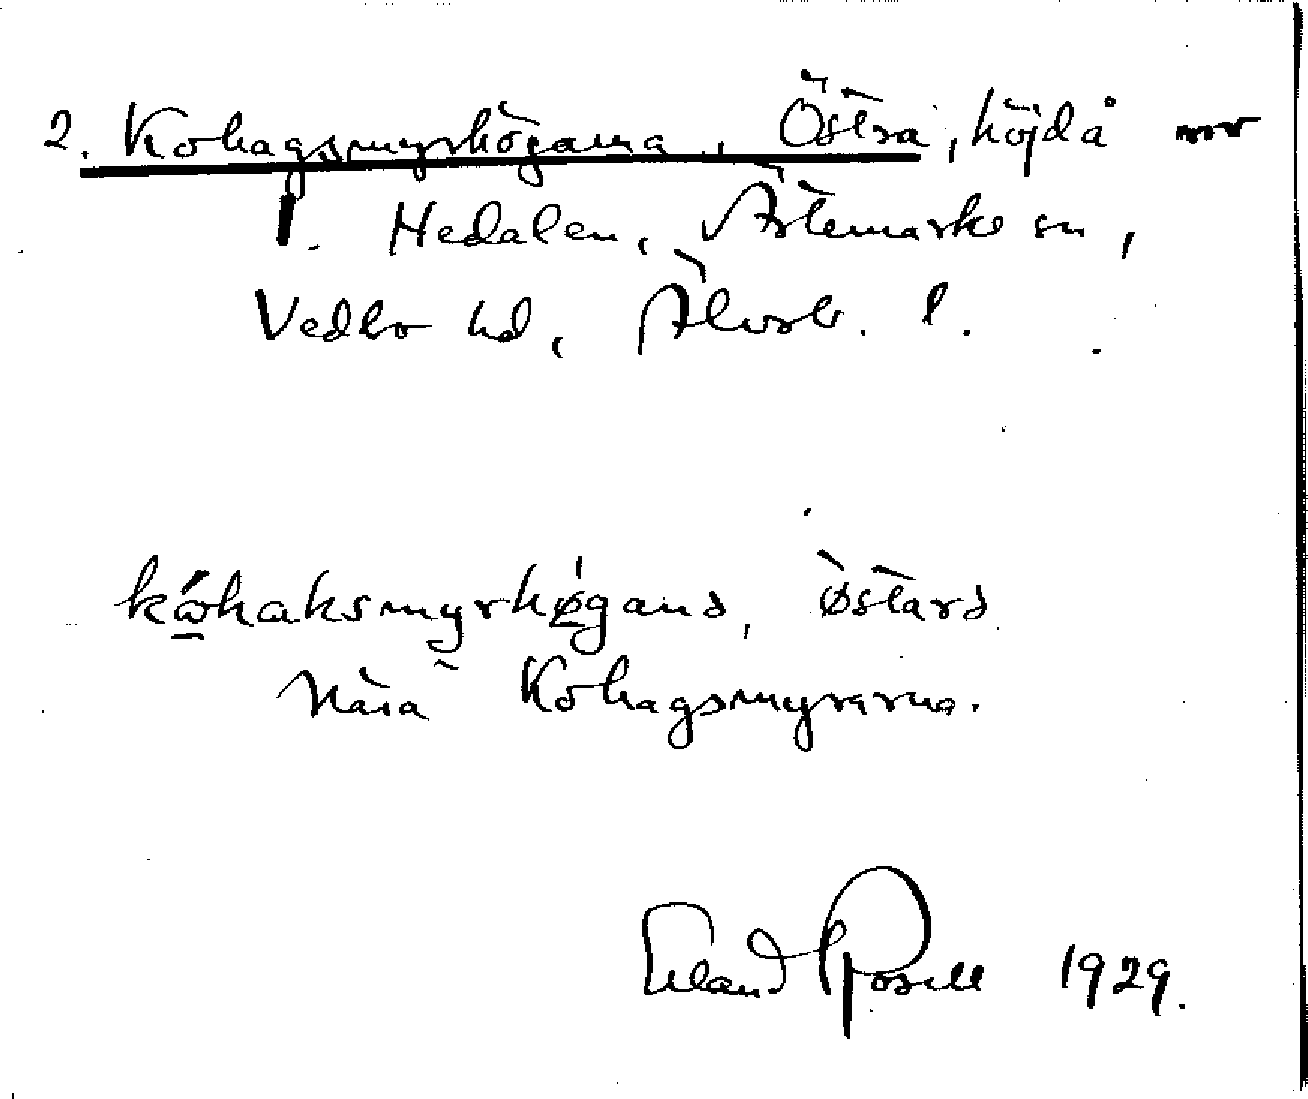 2. Kohagsmyrhögarna, Östra, höjd å
1. Hedalen, Ärtemarks sn,
Vedbo hd, Älvsb. l.
kóhaksmyrhøgana, østara
Nära Kohagsmyrarna.
Erland Rosell 1929.